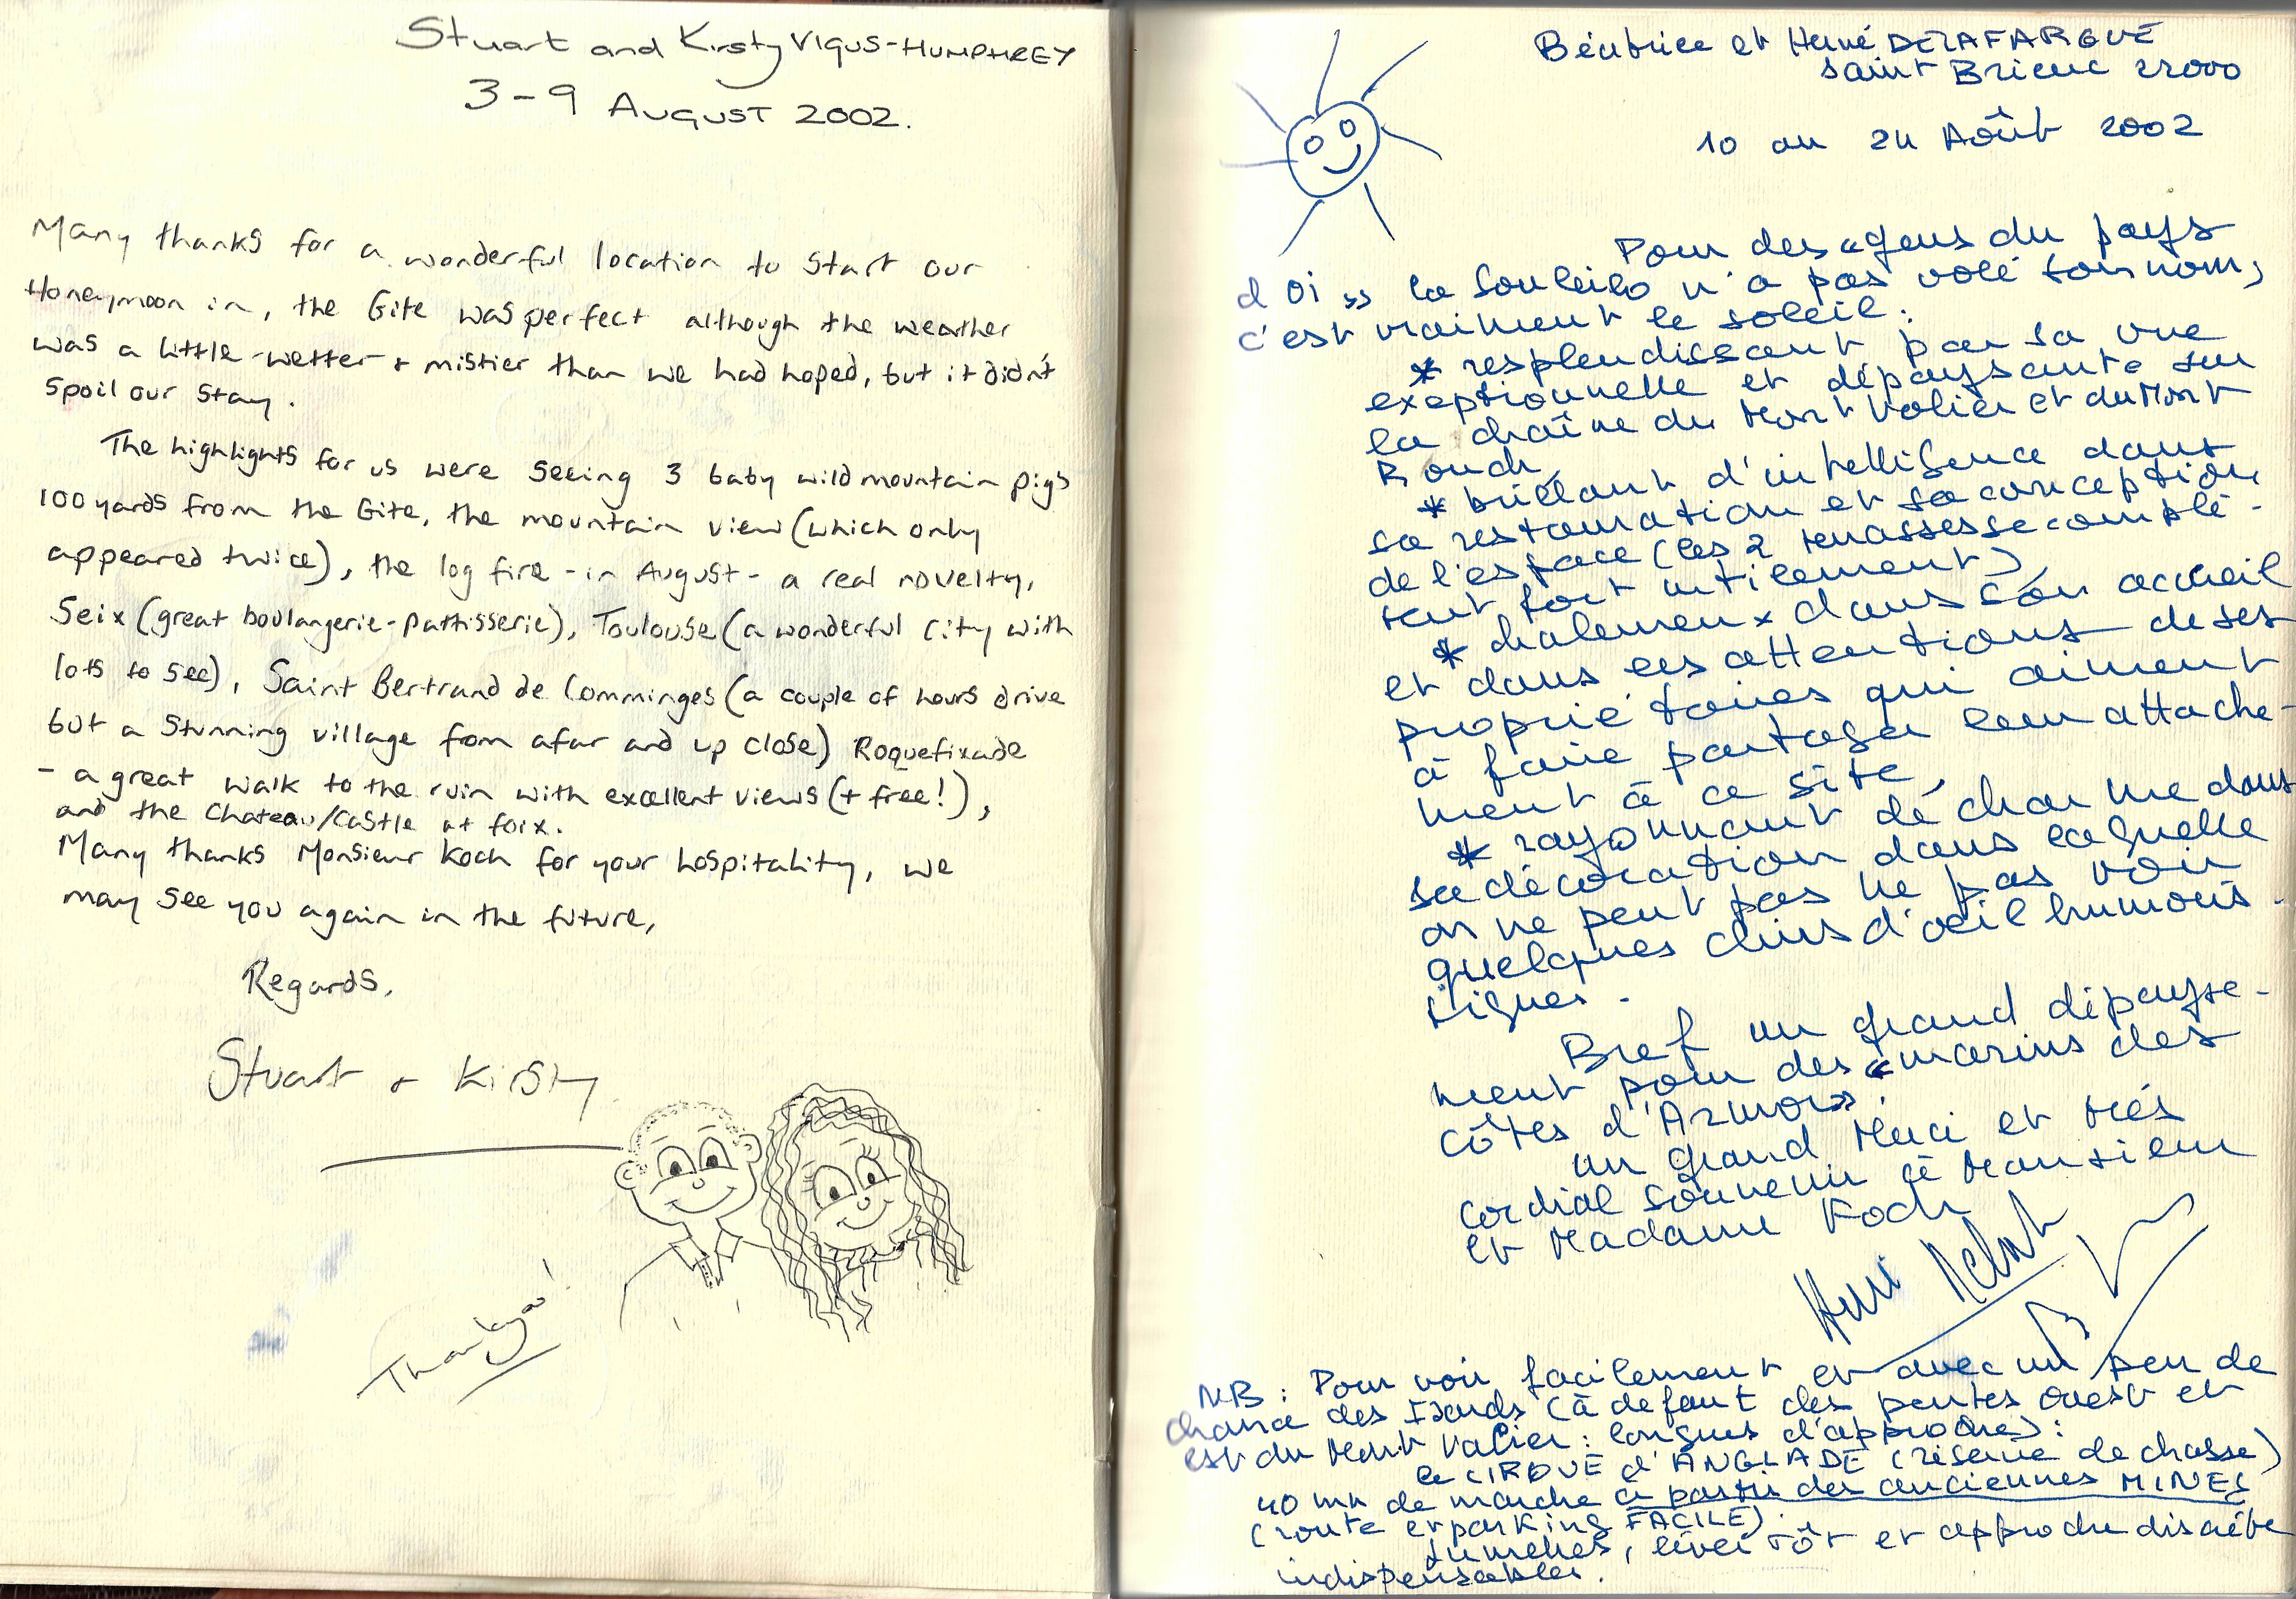 Stuart and Kirsty VIGUS-HUMPHREY
3-9 AUGUST 2002.
Many thanks for a wonderful location to start our
Honeymoon in, the Gite was perfect although the weather
was a little wetter + mistier than we had hoped, but it didn't
spoil our stay.
The highlights for us were seeing 3 baby wild mountain pigs
100 yards from the Gite, the mountain view (which only
appeared twice), the log fire - in August - a real novelty,
Seix (great boulangerie-pattisserie), Toulouse (a wonderful city with
lots to see), Saint Bertrand de Comminges (a couple of hours drive
but a stunning village from afar and up close) Roquefixade
- a great walk to the ruin with excellent views (+ free!),
and the Chateau/Castle at Foix.
Many thanks Monsieur Koch for your hospitality, we
may see you again in the future,
Regards,
Stuart + Kirsty
Thankyou!
Béatrice et Hervé DELAFARGUE
Saint Brieuc 22000
10 au 24 Août 2002
Pour des "gens du pays
d'Oi" la Souleilo n'a pas volé son nom,
c'est vraiment le soleil:
* resplendissant par sa vue
exeptionnelle et dépaysante sur
la chaîne du Mont Valier et du Mont
Rouch
* brillant d'intelligence dans
sa restauration et sa conception
de l'espace (les 2 terrasses se complè-
tent fort utilement)
* chaleureux dans son accueil
et dans les attentions de ses
propriétaires qui aiment
à faire partager leur attache-
ment à ce site,
* rayonnant de charme dans
sa décoration dans laquelle
on ne peut pas ne pas voir
quelques clins d'oeil humoris-
tiques.
Bref un grand dépayse-
ment pour des "marins des
côtes d'Armor".
Un grand Merci et très
cordial souvenir à Monsieur
et Madame Koch
NB: Pour voir facilement et avec un peu de
chance des Isards (à défaut des pentes ouest et
est du Mont Valier: longues d'approche):
le CIRQUE d'ANGLADE (réserve de chasse)
40 mn de marche à partir des anciennes MINES
(route et parking FACILE).
Jumelles, lever tôt et approche discrète
indispensables.